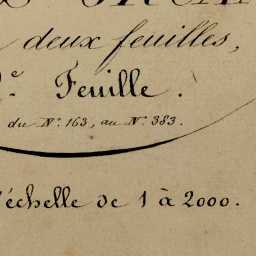 deux feuilles,
e. Feuille.
du N.° 163, au N.° 383.
échelle de 1 à 2000.